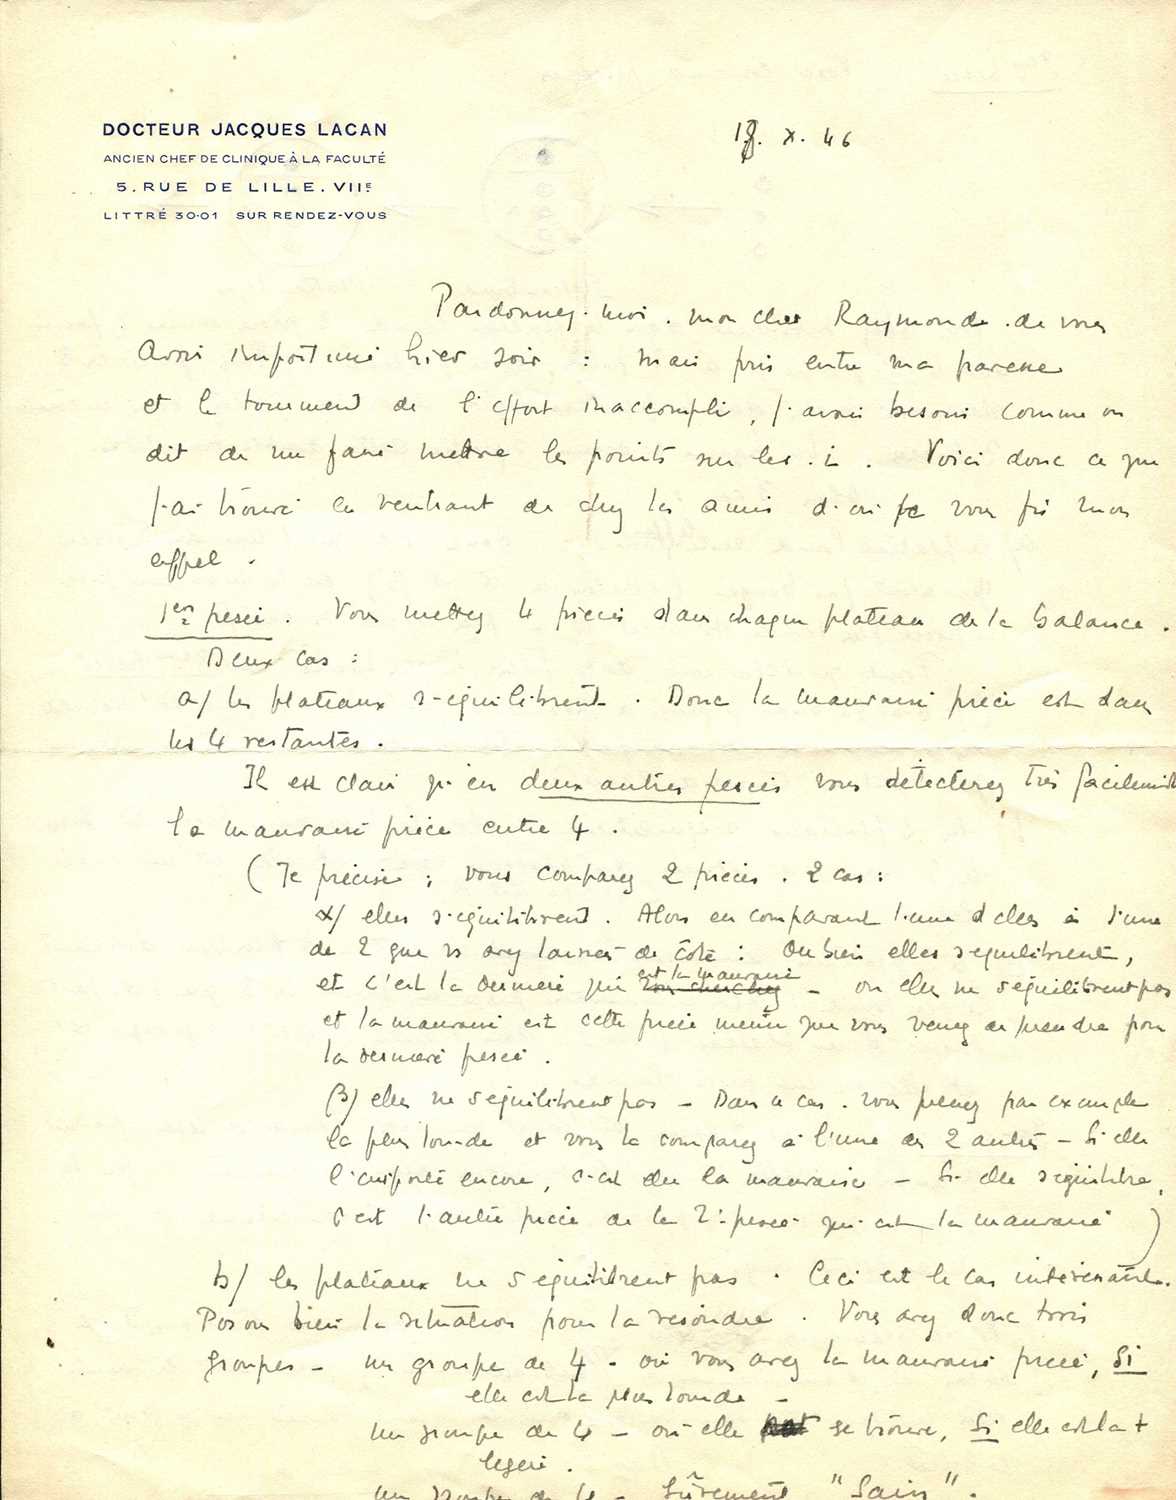 DOCTEUR JACQUES LACAN
ANCIEN CHEF DE CLINIQUE À LA FACULTÉ
5. RUE DE LILLE. VIIE
LITTRÉ 30-01 SUR RENDEZ-VOUS
X. 46
Pardonnez-moi. mon cher Raymond. de vous
avoir importuné hier soir : mais pris entre ma paresse
et le tourment de l'effort inaccompli, j'avais besoin comme on
dit de me faire mettre les points sur les i. Voici donc ce que
j'ai trouvé en rentrant de chez les amis d'où je vous fis mon
appel.
1ère pesée. Vous mettez 4 pièces dans chaque plateau de la balance.
Deux cas :
a/ les plateaux s'équilibrent. Donc la mauvaise pièce est dans
les 4 restantes.
Il est clair qu'en deux autres pesées vous détecterez très facilement
la mauvaise pièce entre 4.
(Je précise : vous comparez 2 pièces. 2 cas :
α/ elles s'équilibrent. Alors en comparant l'une d'elles à l'une
de 2 que vs avez laissées de côté : ou bien elles s'équilibrent,
et c'est la dernière qui est la mauvaise – ou elles ne s'équilibrent pas
et la mauvaise est cette pièce même que vous venez de prendre pour
la dernière pesée.
β/ elles ne s'équilibrent pas – Dans ce cas. vous prenez par exemple
la plus lourde et vous la comparez à l'une des 2 autres – Si elle
l'emporte encore, c'est elle la mauvaise – Si elle s'équilibre,
c'est l'autre pièce de la 2e pesée qui est la mauvaise)
b/ les plateaux ne s'équilibrent pas. Ceci est le cas intéressant.
Posons bien la situation pour la résoudre. Vous avez donc trois
groupes – un groupe de 4 – où vous avez la mauvaise pièce, Si
elle est la plus lourde –
un groupe de 4 – où elle se trouve, Si elle est la +
légère.
un groupe de 4 – sûrement "Sain".